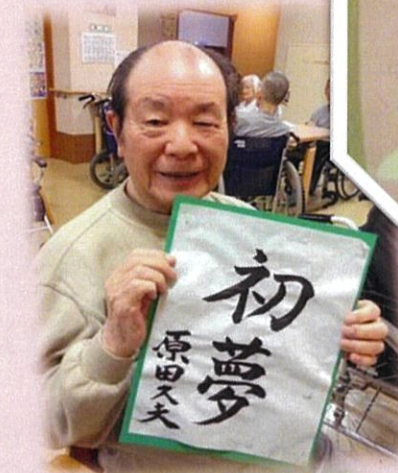 初夢
原田久夫